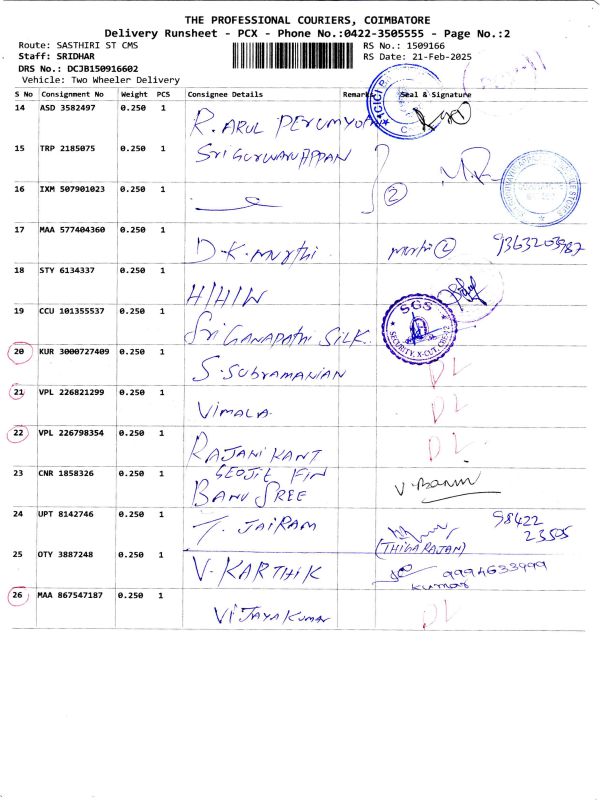 THE PROFESSIONAL COURIERS, COIMBATORE
Delivery Runsheet - PCX - Phone No.:0422-3505555 - Page No.:2
Route: SASTHIRI ST CMS
RS No.: 1509166
Staff: SRIDHAR
RS Date: 21-Feb-2025
DRS No.: DCJB150916602
Vehicle: Two Wheeler Delivery
S No Consignment No Weight PCS Consignee Details Remark Seal & Signature
14 ASD 3582497 0.250 1 R. ARUL
15 TRP 2185075 0.250 1
16 IXM 507901023 0.250 1 2
17 MAA 577404360 0.250 1 D.K. Murthi murthi 2 9363203987
18 STY 6134337 0.250 1
19 CCU 101355537 0.250 1 Sri GANAPATHI SILK.
SGS
SECURITY, X-CUT, CBE-12
20 KUR 3000727409 0.250 1 S. SUBRAMANIAN DL
21 VPL 226821299 0.250 1 VIMALA DL
22 VPL 226798354 0.250 1 RAJANI KANT DL
GEOJIT FIN
23 CNR 1858326 0.250 1 BANU SREE V. Banu
24 UPT 8142746 0.250 1 T. JAIRAM 98422
23505
(THIGARAJAN)
25 OTY 3887248 0.250 1 V. KARTHIK 9994633999
kumar
26 MAA 867547187 0.250 1 VIJAYA KUMAR DL